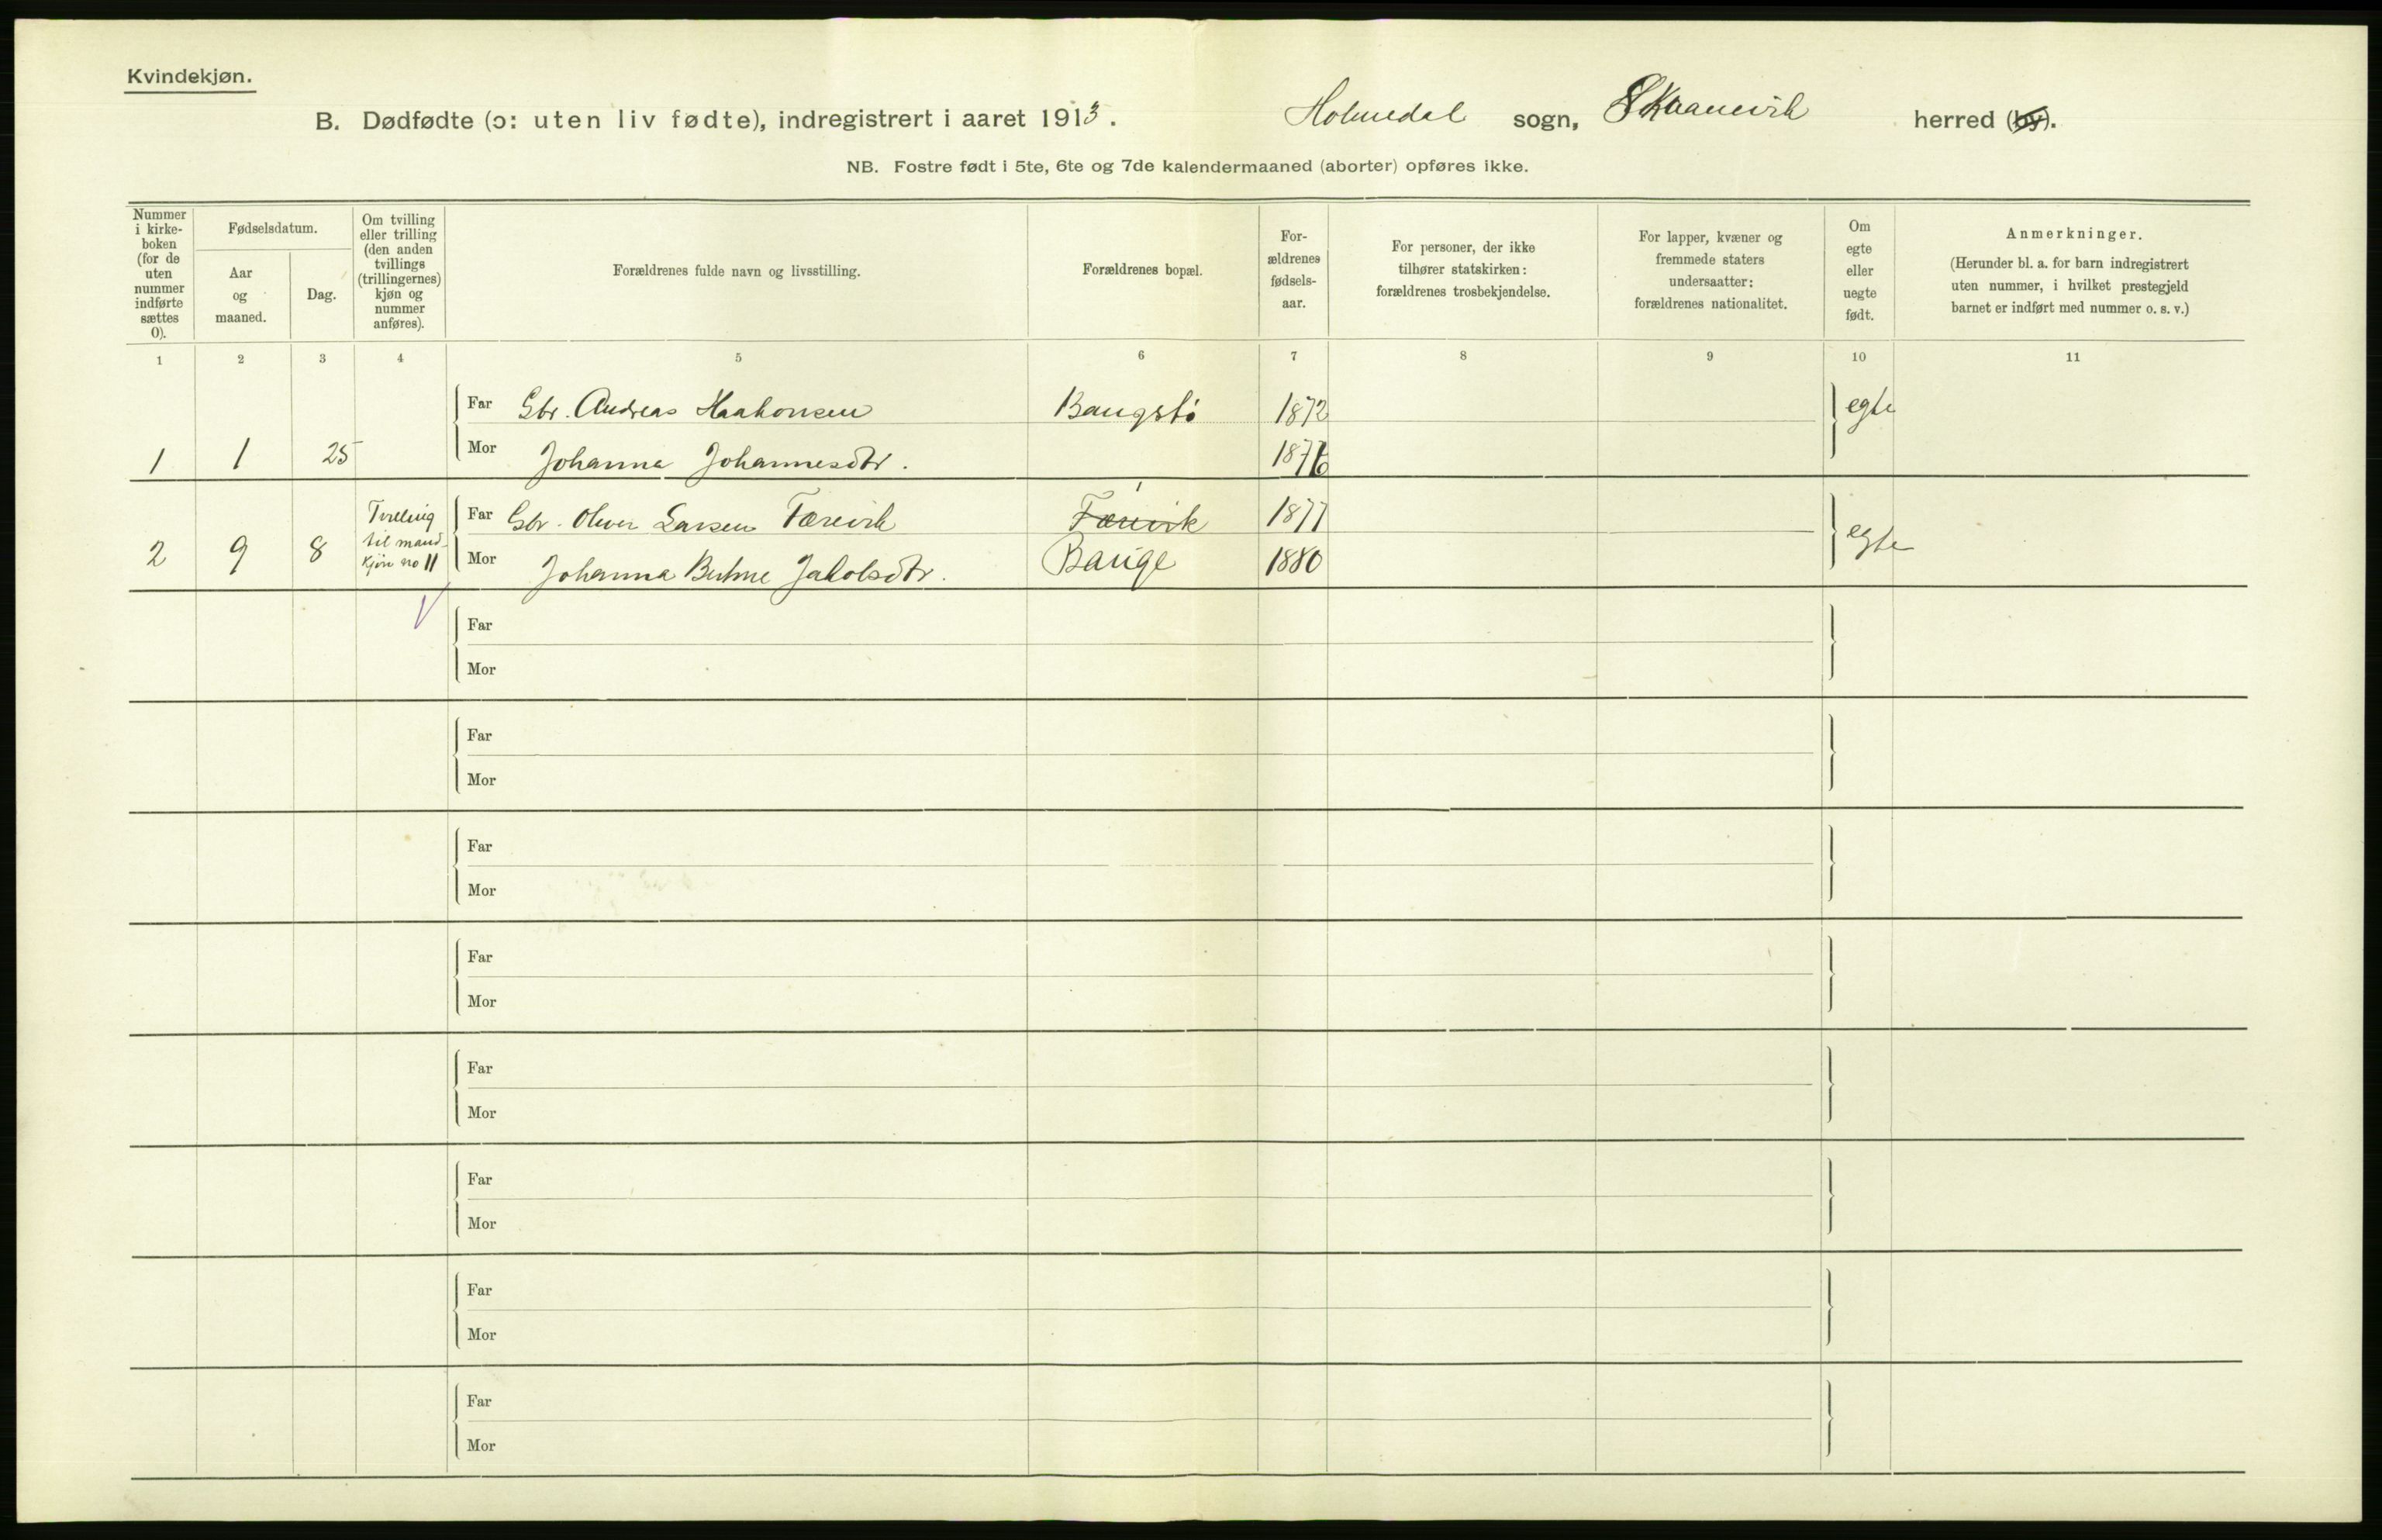 Kvindekjøn.
B. Dødfødte (ɔ: uten liv fødte), indregistrert i aaret 1913. Holmedal sogn, Skaanevik herred (by).
NB. Fostre født i 5te, 6te og 7de kalendermaaned (aborter) opføres ikke.
Nummer
i kirke-
boken
(for de
uten
nummer
indførte
sættes
0).
Fødselsdatum.
Aar
og
maaned.
Dag.
Om tvilling
eller trilling
(den anden
tvillings
(trillingernes)
kjøn og
nummer
anføres).
Forældrenes fulde navn og livsstilling.
Forældrenes bopæl.
For-
ældrenes
fødsels-
aar.
For personer, der ikke
tilhører statskirken:
forældrenes trosbekjendelse.
For lapper, kvæner og
fremmede staters
undersaatter:
forældrenes nationalitet.
Om
egte
eller
uegte
født.
Anmerkninger.
(Herunder bl. a. for barn indregistrert
uten nummer, i hvilket prestegjeld
barnet er indført med nummer o. s. v.)
1 2 3 4 5 6 7 8 9 10 11
Far Gbr. Andreas Haakonsen Baugstø 1872 egte
1 1 25 Mor Johanna Johannesdtr. 1876
Tvilling
til mand-
kjøn no 11
Far Gbr. Oliver Larsen Færevik Færevik 1877 egte
2 9 8 Mor Johanna Jakobsdtr. Bauge 1880
Far
Mor
Far
Mor
Far
Mor
Far
Mor
Far
Mor
Far
Mor
Far
Mor
Far
Mor